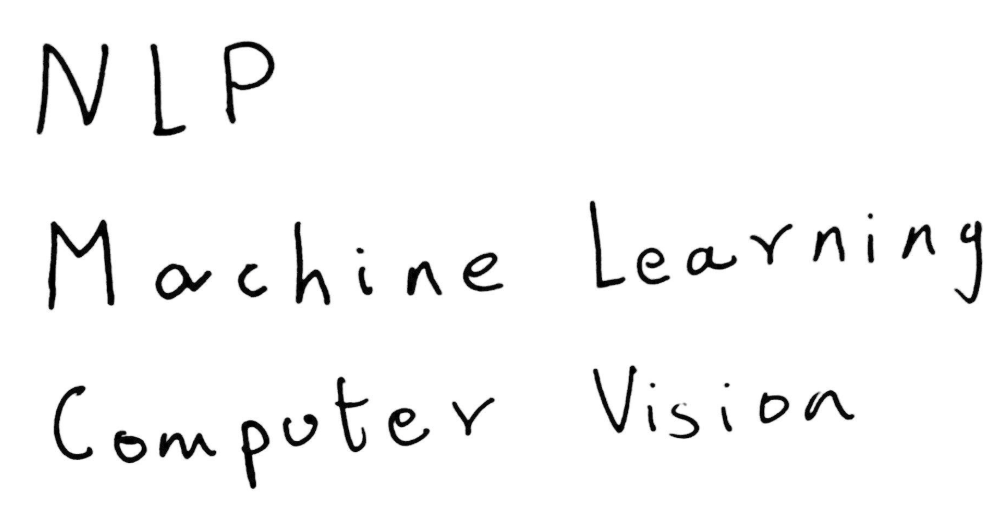 NLP
Machine Learning
Computer Vision